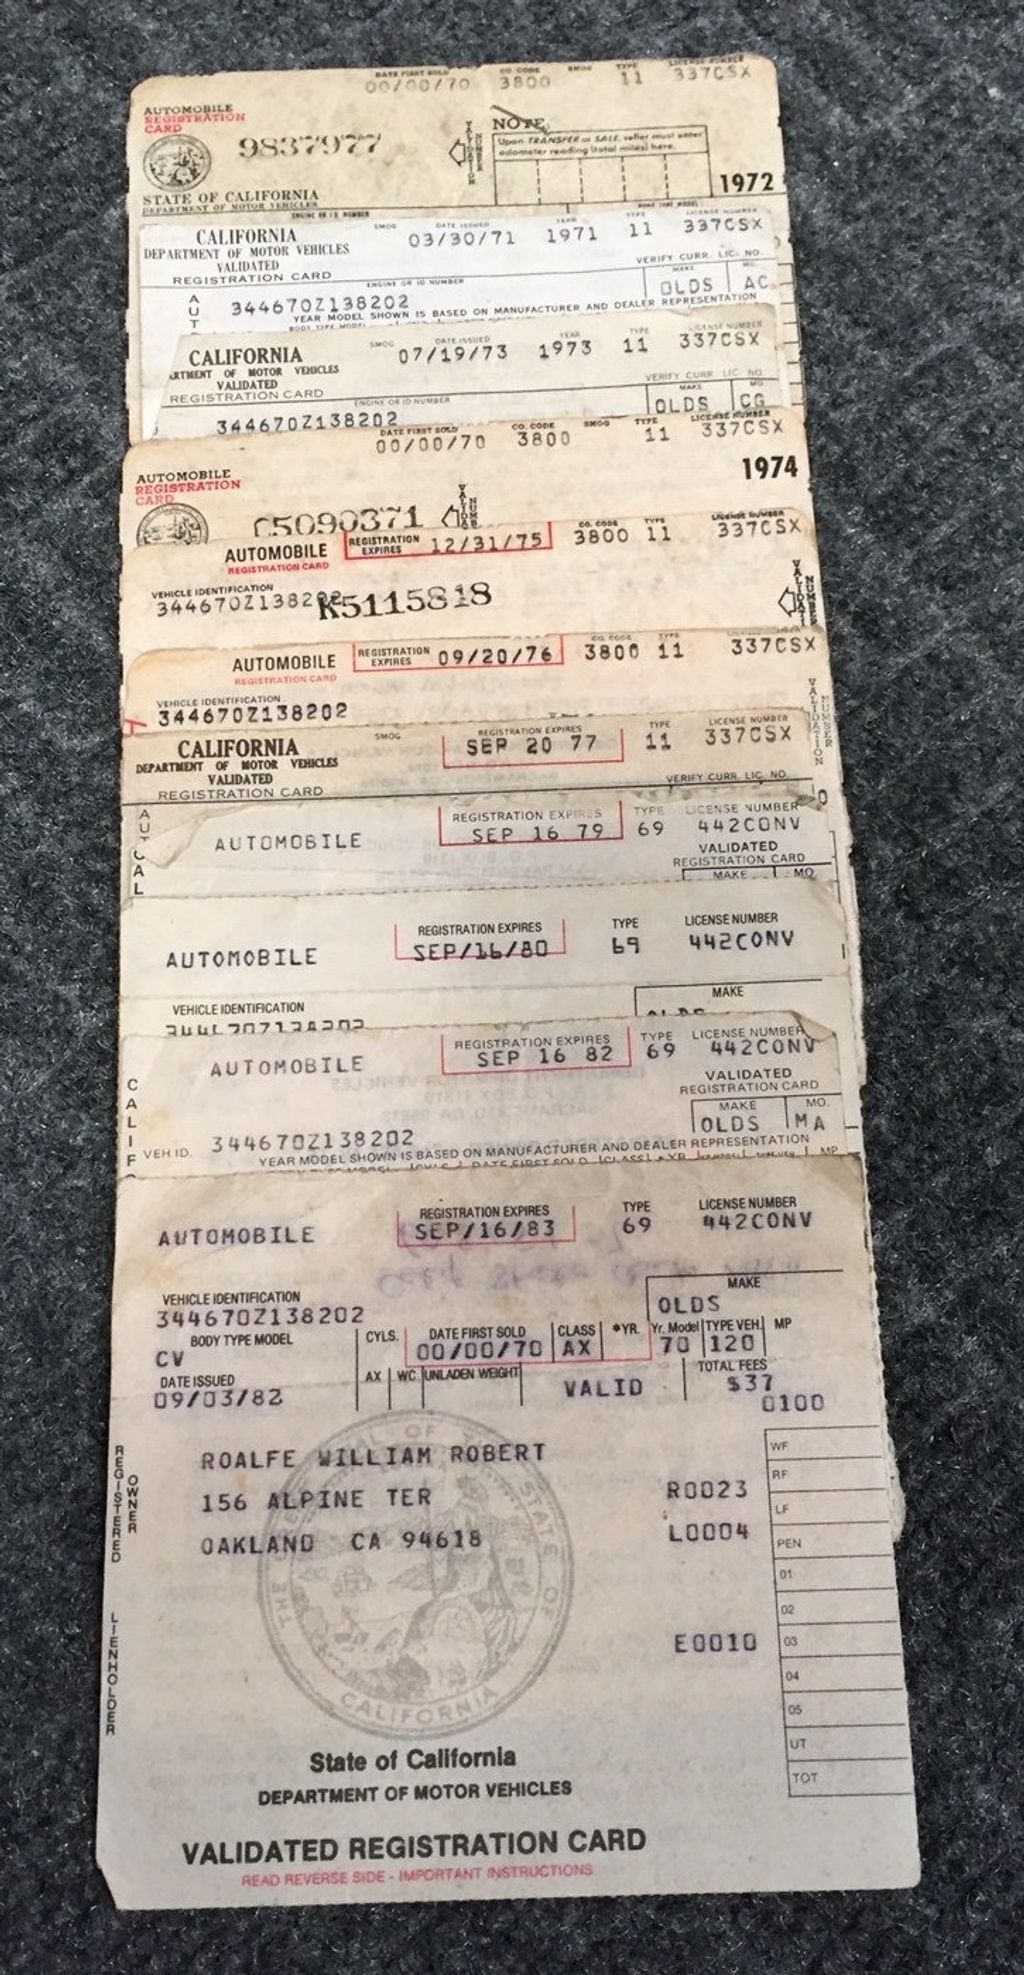 DATE FIRST SOLD CO. CODE SMOG TYPE LICENSE NUMBER
00/00/70 3800 11 337CSX
AUTOMOBILE
REGISTRATION
CARD
9837977
VALIDATION NUMBER
NOTE
Upon TRANSFER or SALE, seller must enter
odometer reading (total miles) here.
1972
STATE OF CALIFORNIA
DEPARTMENT OF MOTOR VEHICLES
ENGINE OR ID NUMBER
CALIFORNIA
DEPARTMENT OF MOTOR VEHICLES
VALIDATED
REGISTRATION CARD
SMOG DATE ISSUED YEAR TYPE LICENSE NUMBER
03/30/71 1971 11 337CSX
VERIFY CURR. LIC. NO.
ENGINE OR ID NUMBER MAKE MO.
344670Z138202 OLDS AC
AUT
YEAR MODEL SHOWN IS BASED ON MANUFACTURER AND DEALER REPRESENTATION
BODY TYPE MODEL
CALIFORNIA
RTMENT OF MOTOR VEHICLES
VALIDATED
REGISTRATION CARD
SMOG DATE ISSUED YEAR TYPE LICENSE NUMBER
07/19/73 1973 11 337CSX
VERIFY CURR. LIC. NO.
ENGINE OR ID NUMBER MAKE MO
344670Z138202 OLDS CG
DATE FIRST SOLD CO. CODE SMOG TYPE LICENSE NUMBER
00/00/70 3800 11 337CSX
AUTOMOBILE
REGISTRATION
CARD
1974
C5090371
AUTOMOBILE
REGISTRATION CARD
REGISTRATION EXPIRES 12/31/75
CO. CODE TYPE LICENSE NUMBER
3800 11 337CSX
VEHICLE IDENTIFICATION
344670Z138202
K5115818
AUTOMOBILE
REGISTRATION CARD
REGISTRATION EXPIRES 09/20/76
CO. CODE TYPE LICENSE NUMBER
3800 11 337CSX
VEHICLE IDENTIFICATION
344670Z138202
VALIDATION NUMBER
CALIFORNIA
DEPARTMENT OF MOTOR VEHICLES
VALIDATED
REGISTRATION CARD
SMOG REGISTRATION EXPIRES TYPE LICENSE NUMBER
SEP 20 77 11 337CSX
VERIFY CURR. LIC. NO.
AUT
CAL
AUTOMOBILE
REGISTRATION EXPIRES TYPE LICENSE NUMBER
SEP 16 79 69 442CONV
VALIDATED
REGISTRATION CARD
MAKE MO.
REGISTRATION EXPIRES TYPE LICENSE NUMBER
AUTOMOBILE SEP/16/80 69 442CONV
VEHICLE IDENTIFICATION MAKE
344670Z138202 OLDS
REGISTRATION EXPIRES TYPE LICENSE NUMBER
AUTOMOBILE SEP 16 82 69 442CONV
VALIDATED
REGISTRATION CARD
MAKE MO.
OLDS MA
CALIF
VEH ID. 344670Z138202
YEAR MODEL SHOWN IS BASED ON MANUFACTURER AND DEALER REPRESENTATION
BODY TYPE MODEL CYLS DATE FIRST SOLD CLASS *YR. MP
REGISTRATION EXPIRES TYPE LICENSE NUMBER
AUTOMOBILE SEP/16/83 69 442CONV
VEHICLE IDENTIFICATION MAKE
344670Z138202 OLDS
BODY TYPE MODEL CYLS. DATE FIRST SOLD CLASS *YR. Yr. Model TYPE VEH. MP
CV 00/00/70 AX 70 120
DATE ISSUED AX WC UNLADEN WEIGHT TOTAL FEES
09/03/82 VALID $37
0100
REGISTERED OWNER
ROALFE WILLIAM ROBERT
156 ALPINE TER R0023
L0004
OAKLAND CA 94618
E0010
LIENHOLDER
WF
RF
LF
PEN
01
02
03
04
05
UT
TOT
THE SEAL OF THE STATE OF CALIFORNIA
State of California
DEPARTMENT OF MOTOR VEHICLES
VALIDATED REGISTRATION CARD
READ REVERSE SIDE - IMPORTANT INSTRUCTIONS